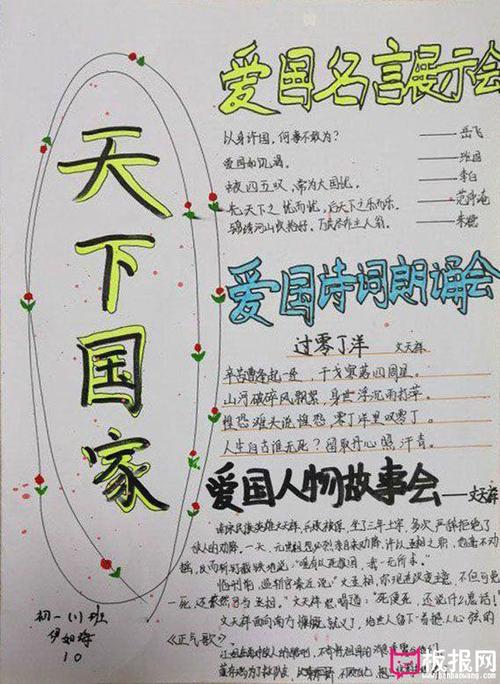 天下国家
爱国名言展示会
以身许国,何事不敢为? ——岳飞
爱国如饥渴。 ——班固
中夜四五叹,常为大国忧。 ——李白
先天下之忧而忧,后天下之乐而乐。 ——范仲淹
锦绣河山收拾好,万民尽作主人翁。 ——朱德
爱国诗词朗诵会
过零丁洋 文天祥
辛苦遭逢起一经,干戈寥落四周星。
山河破碎风飘絮,身世浮沉雨打萍。
惶恐滩头说惶恐,零丁洋里叹零丁。
人生自古谁无死?留取丹心照汗青。
爱国人物故事会——文天祥
南宋民族英雄文天祥,兵败被俘,坐了三年土牢,多次严辞拒绝了
敌人的劝降。一天,元世祖忽必烈亲自来劝降,许以丞相之职,他毫不动
摇,反而斩钉截铁地说:“唯有以死报国,我一无所求。”
监斩官凑近说:“文丞相,你现在改变主意,不但可免
一死,还依然当丞相。”文天祥怒喝道:“死便死,还说什么鬼话!”
文天祥面向南方慷慨就义了,给世人留下一首撼人心弦的
《正气歌》
初一(1)班
10
板报网
www.banbaowang.com